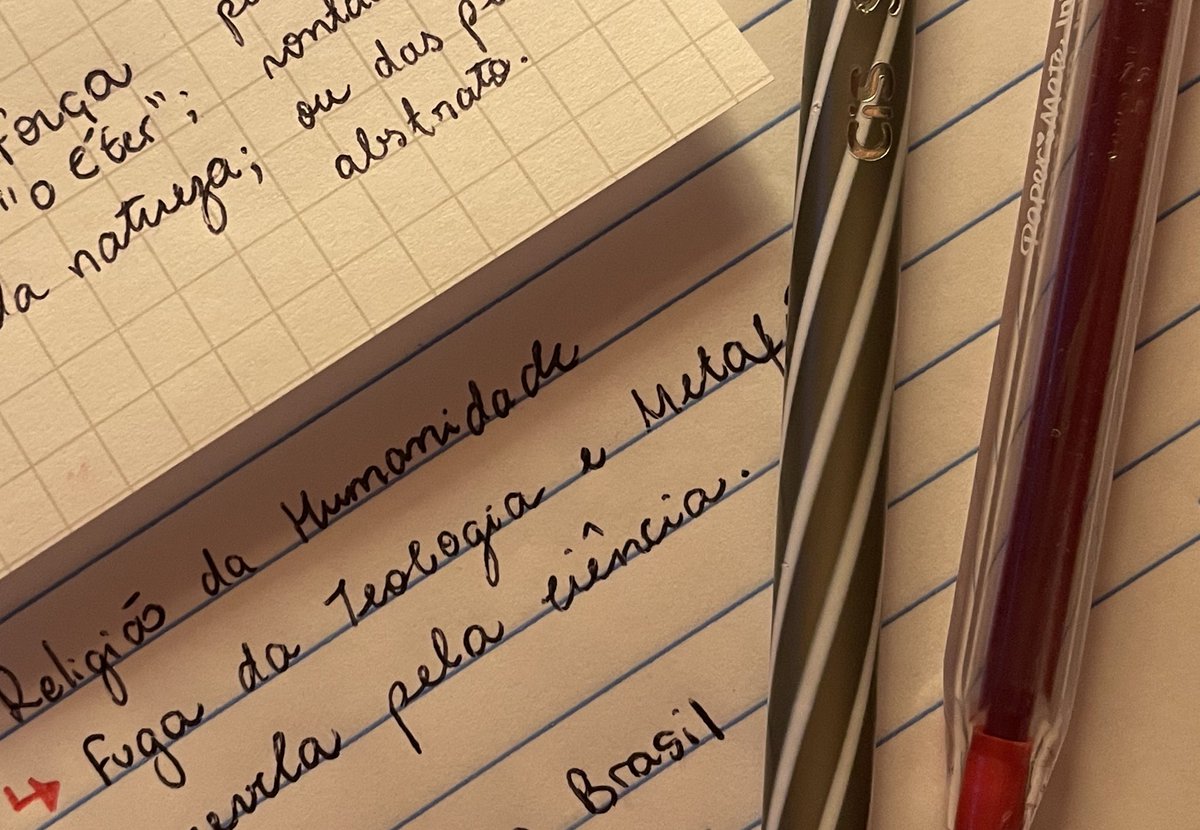 força
"o éter"; 
da natureza; ou das
abstrato.
Religião da Humanidade
↳ Fuga da Teologia e
pela ciência.
Brasil
CiS
PaperMate